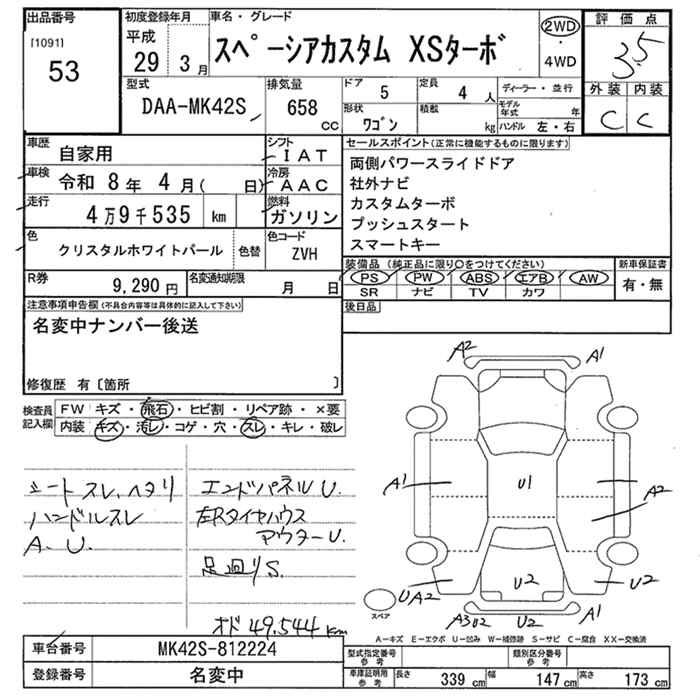 出品番号
[1091]
53
初度登録年月
平成
29 3 月
車名・グレード
スペーシアカスタム XSターボ
2WD
・
4WD
評価点
3.5
外装 内装
C C
型式
DAA-MK42S
排気量
658
cc
ドア
5
定員
4 人
形状
ワゴン
積載
kg
ディーラー・並行
モデル年式 年
ハンドル 左・右
車歴
自家用
車検 令和 8年 4月( 日)
走行
4万9千535 km
シフト
IAT
冷房
AAC
燃料
ガソリン
色
クリスタルホワイトパール
色替
色コード
ZVH
R券
9,290円
名変通知期限
月 日
セールスポイント(正常に機能するものに限ります)
両側パワースライドドア
社外ナビ
カスタムターボ
プッシュスタート
スマートキー
装備品(純正品に限り○をつけてください)
PS PW ABS エアB AW
SR ナビ TV カワ
新車保証書
有・無
後日品
注意事項申告欄(不具合内容等は具体的に記入して下さい)
名変中ナンバー後送
修復歴 有〔箇所 〕
検査員記入欄
FW キズ・飛石・ヒビ割・リペア跡・×要
内装 キズ・汚レ・コゲ・穴・スレ・キレ・破レ
シートスレ、ヘタリ
ハンドルスレ
A.U.
エンドパネルU.
左Rタイヤハウス
アウターU.
足回りS.
オド 49.544km
A2 A1
A1 U1 A2
UA2 U2 U2
A3U2 U2 A1
スペア
A-キズ E-エクボ U-凹み W-補修跡 S-サビ C-腐食 XX-交換済
車台番号 MK42S-812224
登録番号 名変中
型式指定番号 参考
類別区分番号 参考
車庫証明用 参考
長さ 339 cm 幅 147 cm 高さ 173 cm